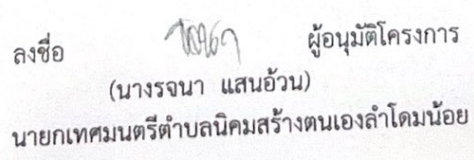 ลงชื่อ ผู้อนุมัติโครงการ
(นางรจนา แสนอ้วน)
นายกเทศมนตรีตำบลนิคมสร้างตนเองลำโดมน้อย